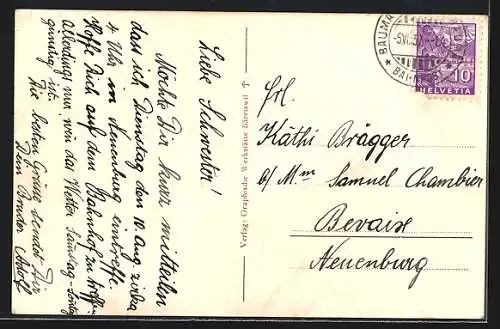 Liebe Schwester!
Möchte Dir kurz mitteilen
dass ich Dienstag den 10. Aug. zirka
4 Uhr in Neuenburg eintreffe.
Hoffe Dich auf dem Bahnhof zu treffen
allerdings nur wen das Wetter Samstag-Sonntag
günstig ist.
Die besten Grüsse sendet Dir
Dein Bruder Adolf
Verlag: Graphische Werkstätte Bäretswil
Frl.
Käthi Brägger
b/ M.m Samuel Chambier
Bevaix
Neuenburg
BAUMA
10
HELVETIA